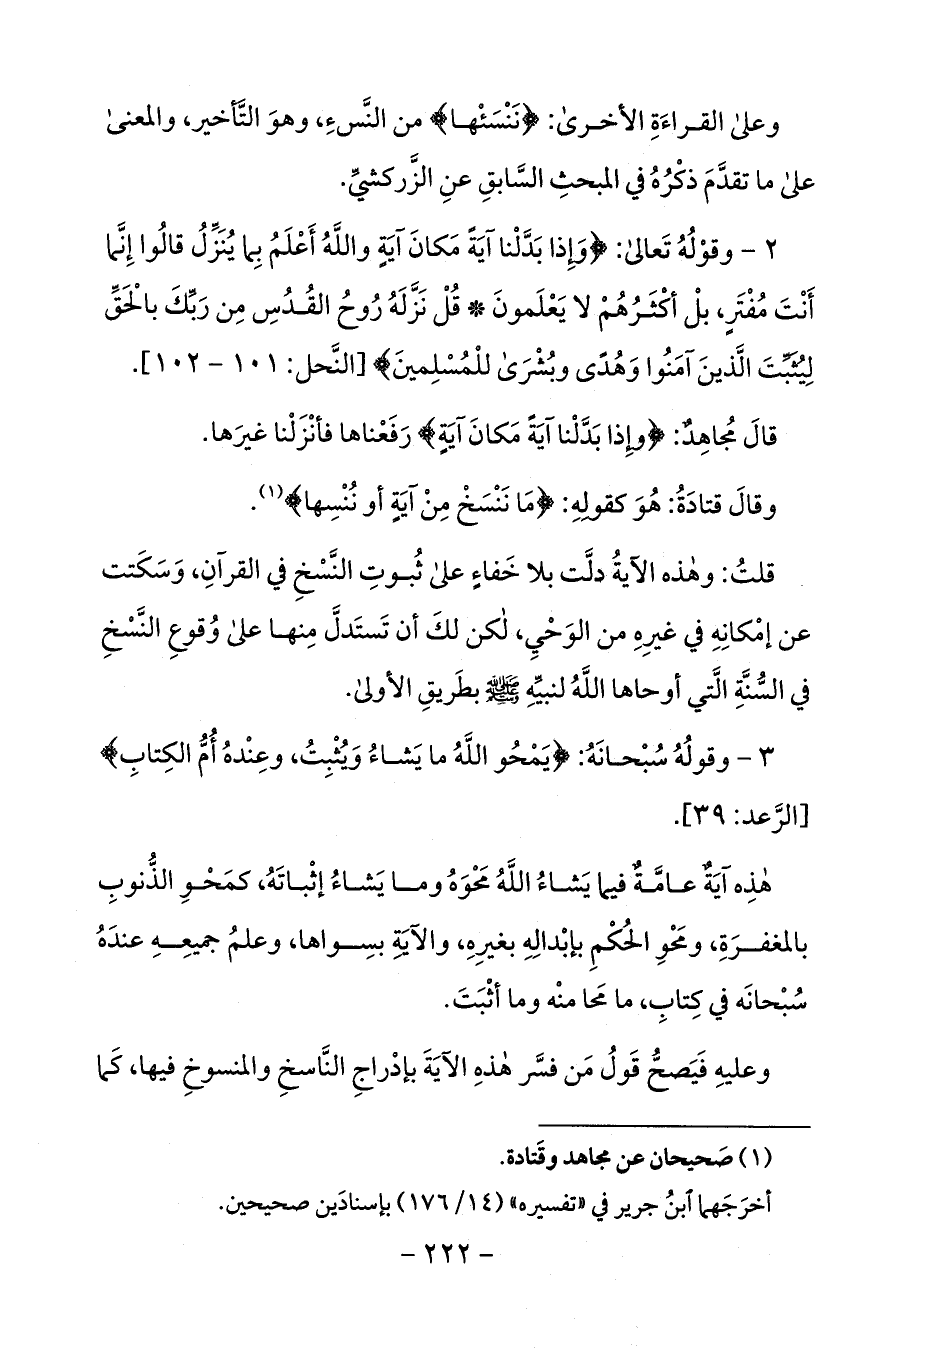 وعلىٰ القراءَةِ الأخرىٰ: ﴿نَنْسَئْها﴾ من النَّسءِ، وهوَ التَّأخير، والمعنىٰ
علىٰ ما تقدَّمَ ذكْرُهُ في المبحثِ السَّابقِ عنِ الزَّركشيِّ.
٢ - وقوْلُهُ تَعالىٰ: ﴿وَإِذا بَدَّلْنا آيَةً مَكانَ آيَةٍ واللَّهُ أَعْلَمُ بِما يُنَزِّلُ قالُوا إِنَّما
أَنْتَ مُفْتَرٍ، بلْ أكْثَرُهُمْ لا يَعْلَمونَ * قُلْ نَزَّلَهُ رُوحُ القُدُسِ مِن رَبِّكَ بالْحَقِّ
لِيُثَبِّتَ الَّذينَ آمَنُوا وَهُدًى وبُشْرَىٰ للْمُسْلِمينَ﴾ [النَّحل: ١٠١ - ١٠٢].
قالَ مُجاهِدٌ: ﴿وإِذا بَدَّلْنا آيَةً مَكانَ آيَةٍ﴾ رَفَعْناها فأنْزَلْنا غيرَها.
وقالَ قتادَةُ: هُوَ كقولِهِ: ﴿مَا نَنْسَخْ مِنْ آيَةٍ أو نُنْسِها﴾(١).
قلتُ: وهٰذه الآيةُ دلَّت بلا خَفاءٍ علىٰ ثُبوتِ النَّسْخِ في القرآنِ، وَسَكَتت
عن إمْكانِهِ في غيرِهِ من الوَحْيِ، لٰكن لكَ أن تَستَدلَّ مِنها علىٰ وُقوعِ النَّسْخِ
في السُّنَّةِ الَّتي أوحاها اللَّهُ لنبيِّهِ ﷺ بطَريقِ الأولىٰ.
٣ - وقولُهُ سُبْحانَهُ: ﴿يَمْحُو اللَّهُ ما يَشاءُ وَيُثْبِتُ، وعِنْدهُ أُمُّ الكِتابِ﴾
[الرَّعد: ٣٩].
هٰذِه آيَةٌ عامَّةٌ فيما يَشاءُ اللَّهُ مَحْوَهُ وما يَشاءُ إثْباتَهُ، كمَحْوِ الذُّنوبِ
بالمغفرَةِ، ومَحْوِ الحُكْمِ بإبْدالِهِ بغيرِهِ، والآيَةِ بسِواها، وعلمُ جميعِهِ عندَهُ
سُبْحانَه في كِتابٍ، ما مَحا منْه وما أثْبَتَ.
وعليهِ فَيَصحُّ قَولُ مَن فسَّر هٰذهِ الآيَةَ بإدْراجِ النَّاسخِ والمنسوخِ فيها، كَما
(١) صَحيحان عن مجاهد وقَتادة.
أخرَجَهما ٱبنُ جرير في «تفسيره» (١٤/ ١٧٦) بإسنادَين صحيحين.
- ٢٢٢ -